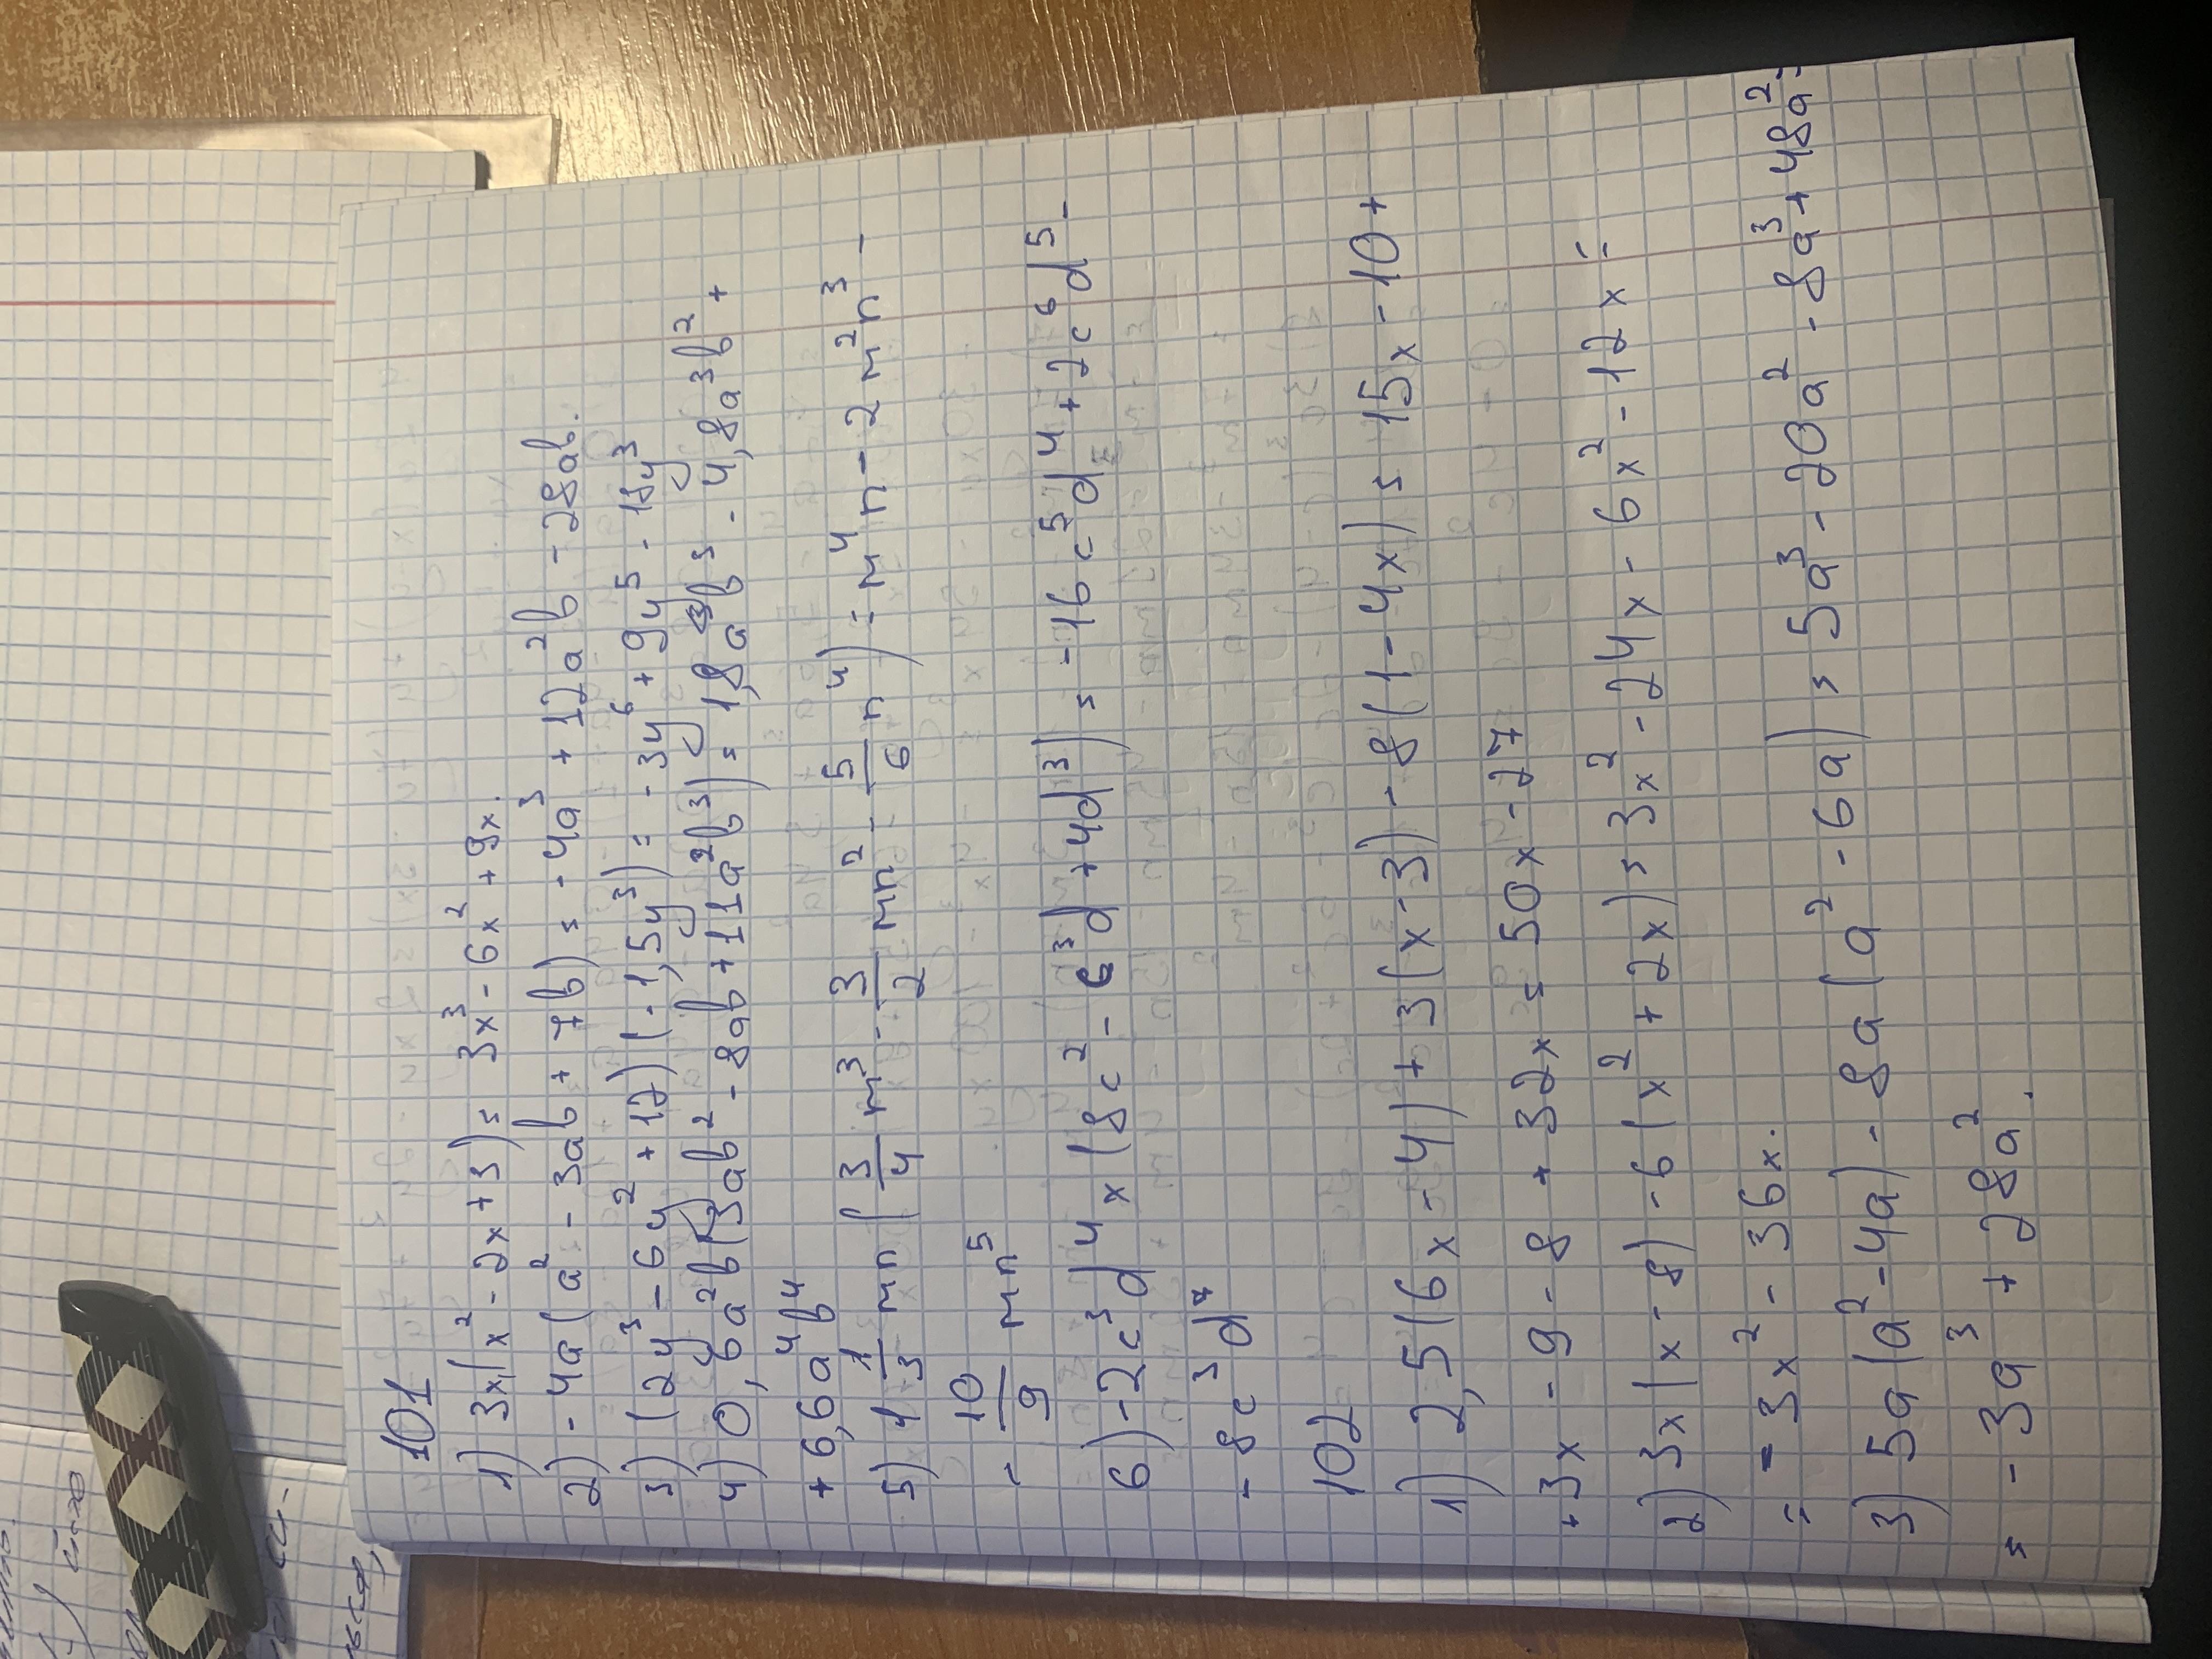 101
1) 3x(x² - 2x + 3) = 3x³ - 6x² + 9x.
2) -4a(a² - 3ab + 7b) = -4a³ + 12a²b - 28ab.
3) (2y³ - 6y² + 12)(-1,5y³) = -3y⁶ + 9y⁵ - 18y³
4) 0,6a²b(3ab² - 8ab + 11a²b³) = 1,8a³b³ - 4,8a³b² +
+ 6,6a⁴b⁴
5) 1 1/3 mn (3/4 m³ - 3/2 mn² - 5/6 n⁴) = m⁴n - 2m²n³ -
- 10/9 mn⁵
6) -2c³d⁴ x (8c² - c³d + 4d³) = -16c⁵d⁴ + 2c⁶d⁵ -
- 8c³d⁷
102
1) 2,5(6x - 4) + 3(x - 3) - 8(1 - 4x) = 15x - 10 +
+ 3x - 9 - 8 + 32x = 50x - 27
2) 3x(x - 8) - 6(x² + 2x) = 3x² - 24x - 6x² - 12x =
= -3x² - 36x.
3) 5a(a² - 4a) - 8a(a² - 6a) = 5a³ - 20a² - 8a³ + 48a² =
= -3a³ + 28a².